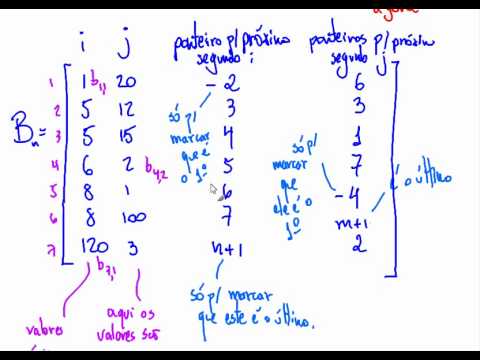 agora
i j ponteiro p/ próximo segundo i ponteiros p/ próximo segundo j
1 1 b1,1 20 -2 6
2 5 12 3 3
Bn = 3 5 15 4 1
4 6 2 b4,2 5 7
5 8 1 6 -4
6 8 100 7 m+1
7 120 3 n+1 2
b7,1
só p/
marcar
que é
o 1º
só p/
marcar
que
ele é o
1º
é o último
só p/ marcar
que este é o último.
valores
aqui os
valores são